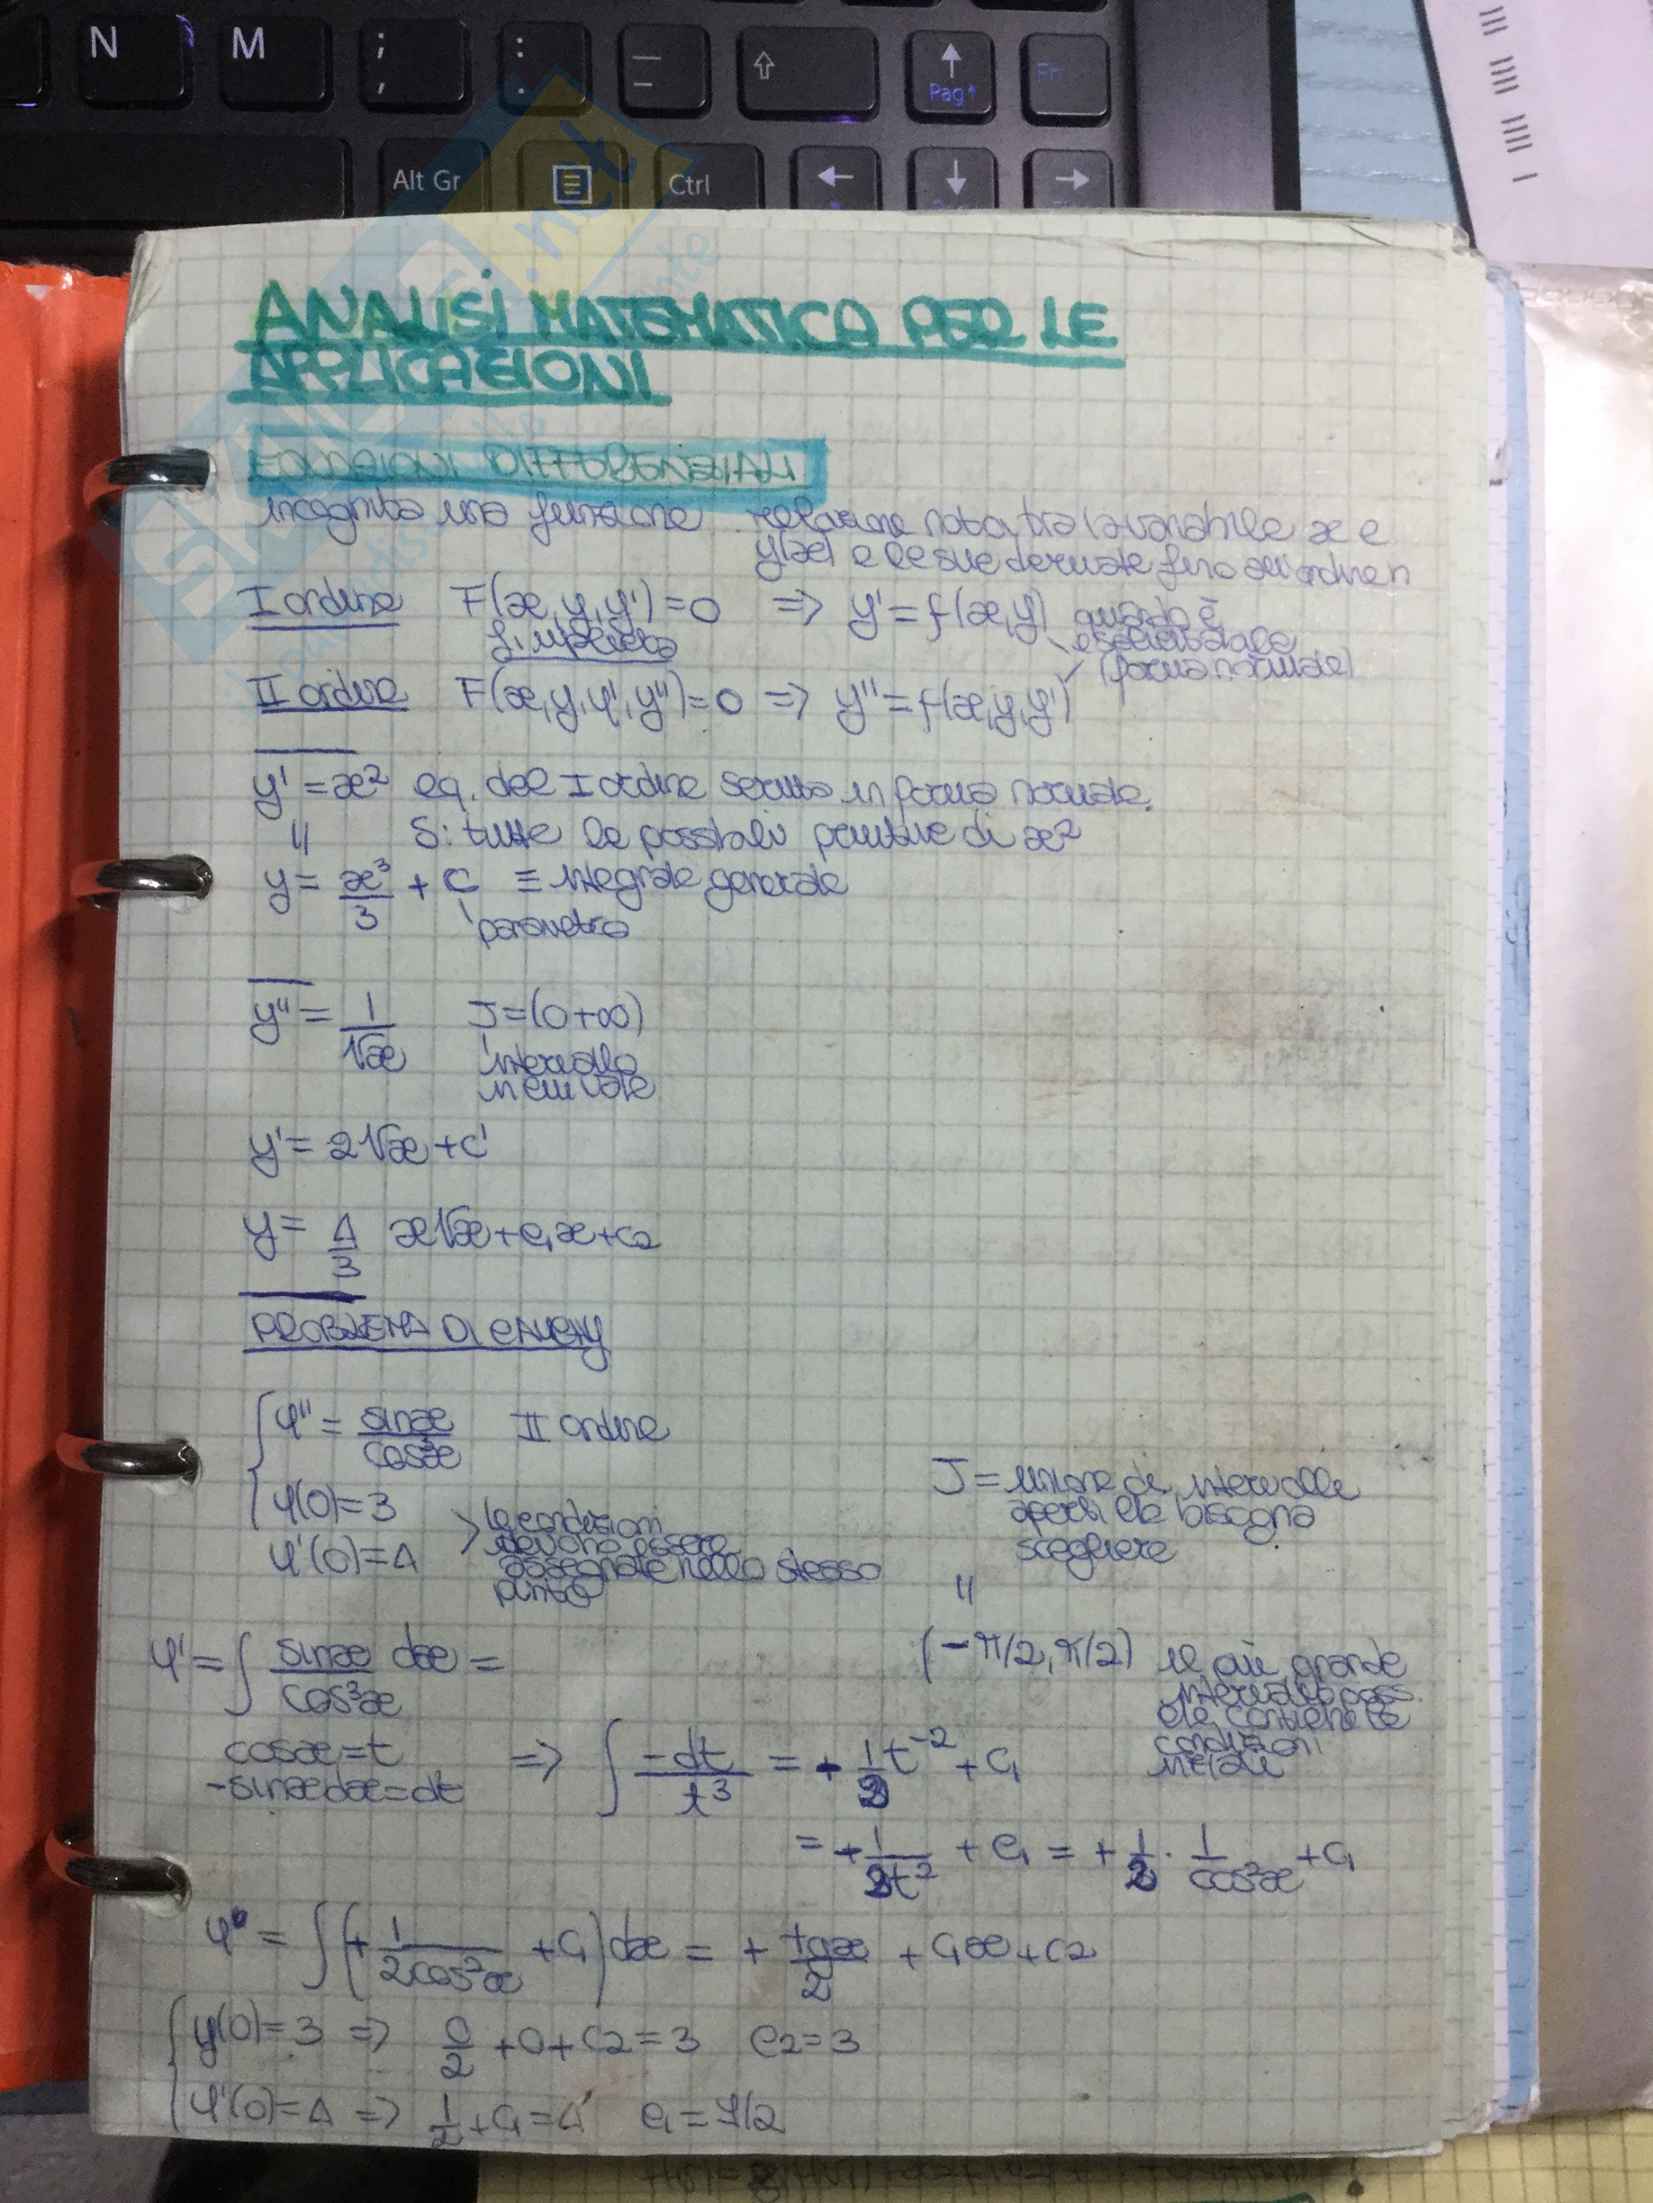 N M ; , : . — – Pag Fn
Alt Gr Ctrl
SKUOLA.net
ANALISI MATEMATICA PER LE
APPLICAZIONI
EQUAZIONI DIFFERENZIALI
incognita una funzione relazione nota tra la variabile x e
y(x) e le sue derivate fino all'ordine n
I ordine F(x,y,y')=0 => y'=f(x,y) quando è
f. implicita esplicitabile
(forma normale)
II ordine F(x,y,y',y'')=0 => y''=f(x,y,y')
y'=x² eq. del I ordine scritta in forma normale.
S: tutte le possibili primitive di x²
y= x³/3 + C ≡ integrale generale
parametro
y''= 1/√x J=(0+∞)
intervallo
in cui vale
y'= 2√x+c'
y= 4/3 x√x+c₁x+c₂
PROBLEMA DI CAUCHY
y''= sinx/cos³x II ordine
y(0)=3
y'(0)=4 > le condizioni
devono essere
assegnate nello stesso
punto
J= unione di intervalli
aperti che bisogna
scegliere
"
(-π/2, π/2) il più grande
intervallo poss.
che contiene le
condizioni
iniziali
y'= ∫ sinx/cos³x dx =
cosx=t
-sinxdx=dt
=> ∫ -dt/t³ = + 1/2 t⁻² + C₁
= + 1/2t² + C₁ = + 1/2 · 1/cos²x + C₁
y = ∫(+ 1/2cos²x + C₁)dx = + tgx/2 + C₁x+C₂
y(0)=3 => 0/2 +0+C₂=3 C₂=3
y'(0)=4 => 1/2 +C₁=4 C₁=7/2